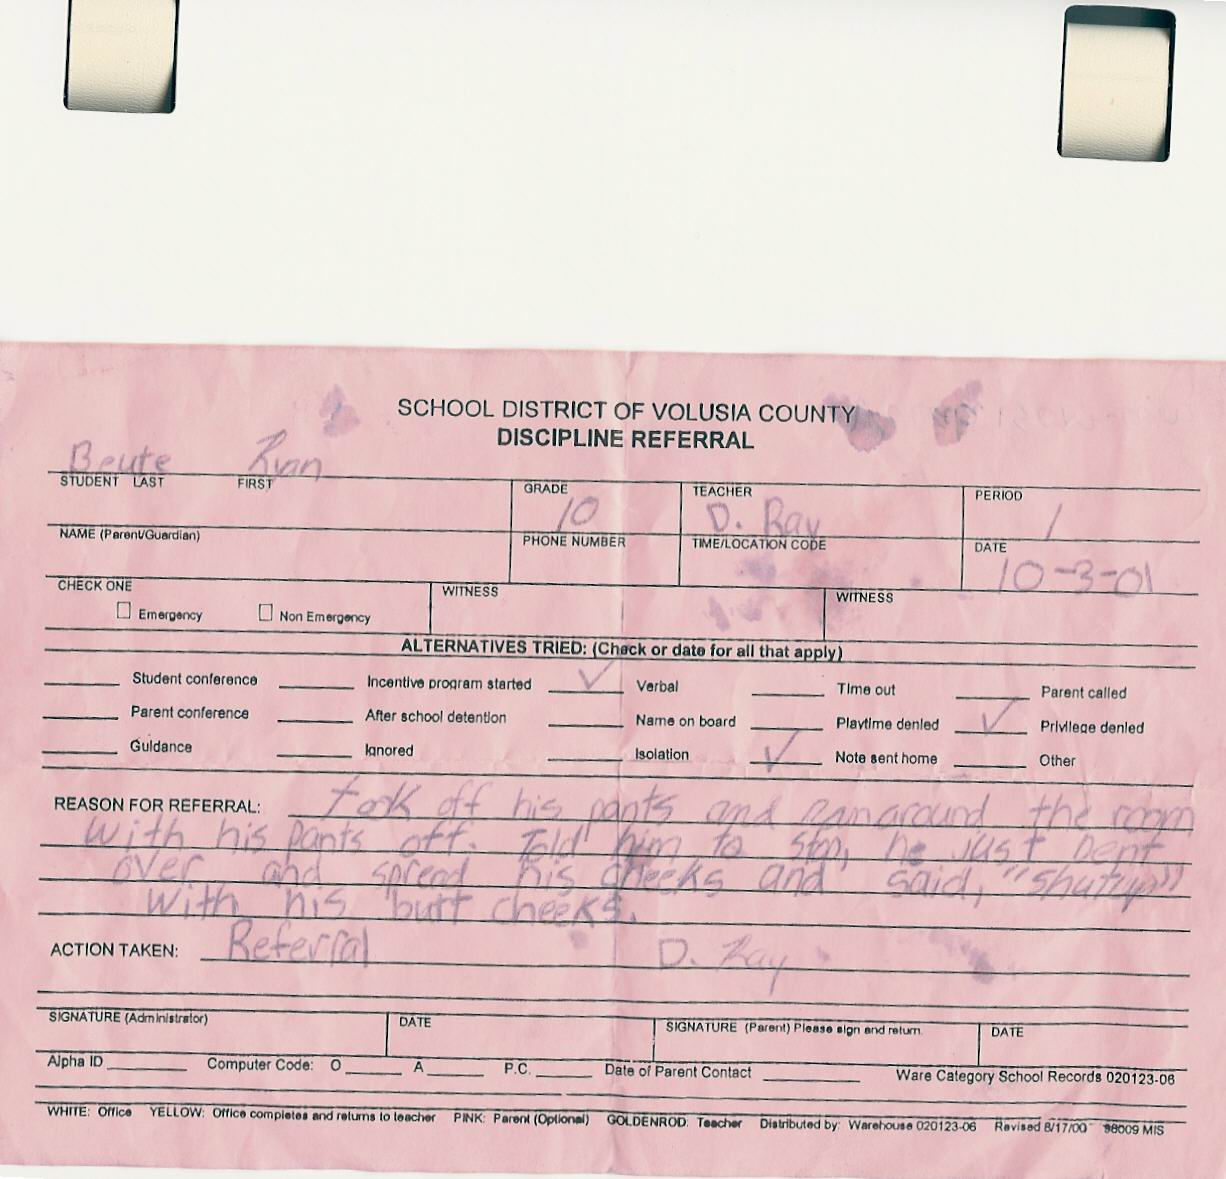 SCHOOL DISTRICT OF VOLUSIA COUNTY
DISCIPLINE REFERRAL
Beute Ryan
STUDENT LAST FIRST
GRADE 10
TEACHER D. Ray
PERIOD 1
NAME (Parent/Guardian)
PHONE NUMBER
TIME/LOCATION CODE
DATE 10-3-01
CHECK ONE
Emergency Non Emergency
WITNESS
WITNESS
ALTERNATIVES TRIED: (Check or date for all that apply)
Student conference Incentive program started ✓ Verbal Time out Parent called
Parent conference After school detention Name on board Playtime denied ✓ Privilege denied
Guidance Ignored Isolation ✓ Note sent home Other
REASON FOR REFERRAL: took off his pants and ran around the room
with his pants off. Told him to stop, he just bent
over and spread his cheeks and said, "shutup"
with his butt cheeks.
ACTION TAKEN: Referral D. Ray
SIGNATURE (Administrator) DATE SIGNATURE (Parent) Please sign and return. DATE
Alpha ID Computer Code: O A P.C. Date of Parent Contact Ware Category School Records 020123-06
WHITE: Office YELLOW: Office completes and returns to teacher PINK: Parent (Optional) GOLDENROD: Teacher Distributed by: Warehouse 020123-06 Revised 8/17/00 98009 MIS